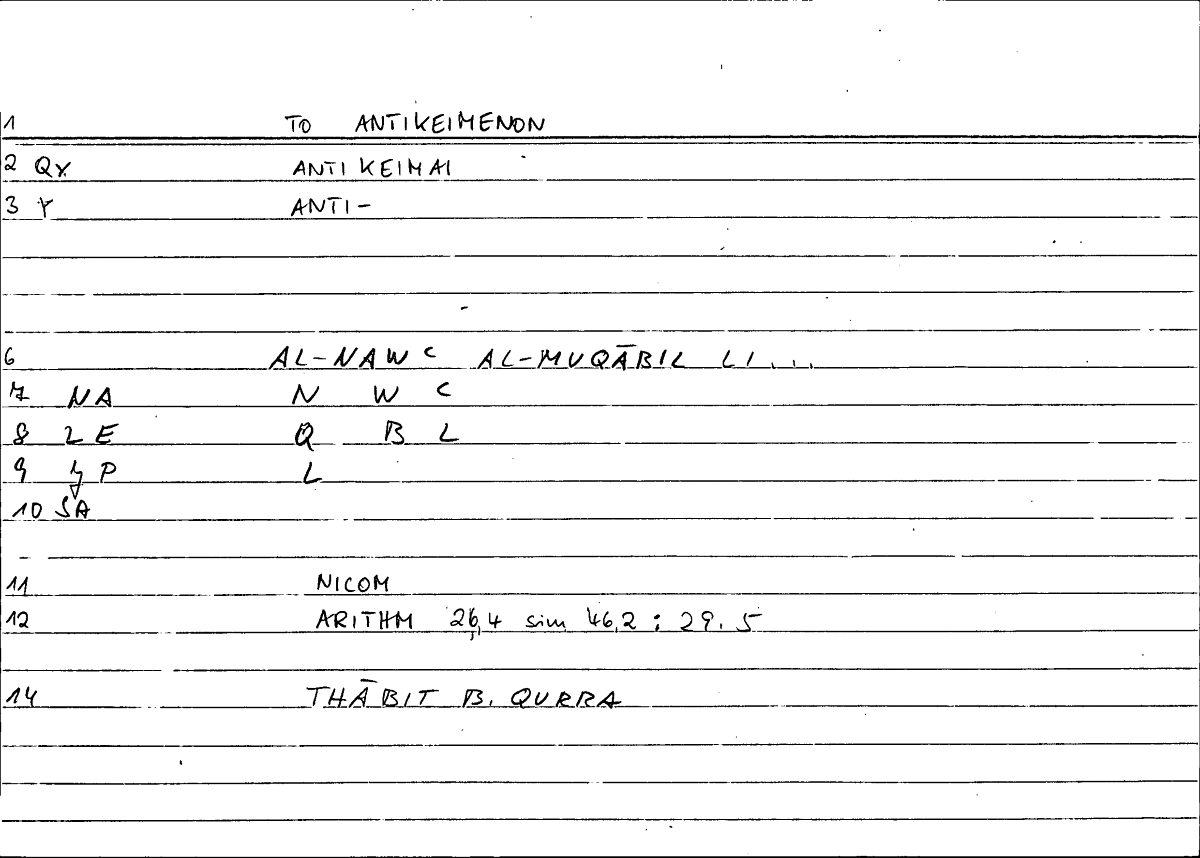 1 TO ANTIKEIMENON
2 Qx ANTIKEIMAI
3 ANTI-
6 AL-NAWC AL-MUQĀBIL LI...
7 NA N W C
8 LE Q B L
9 P L
10 SA
11 NICOM
12 ARITHM 26,4 sim 46,2 : 29.5
14 THĀBIT B. QURRA